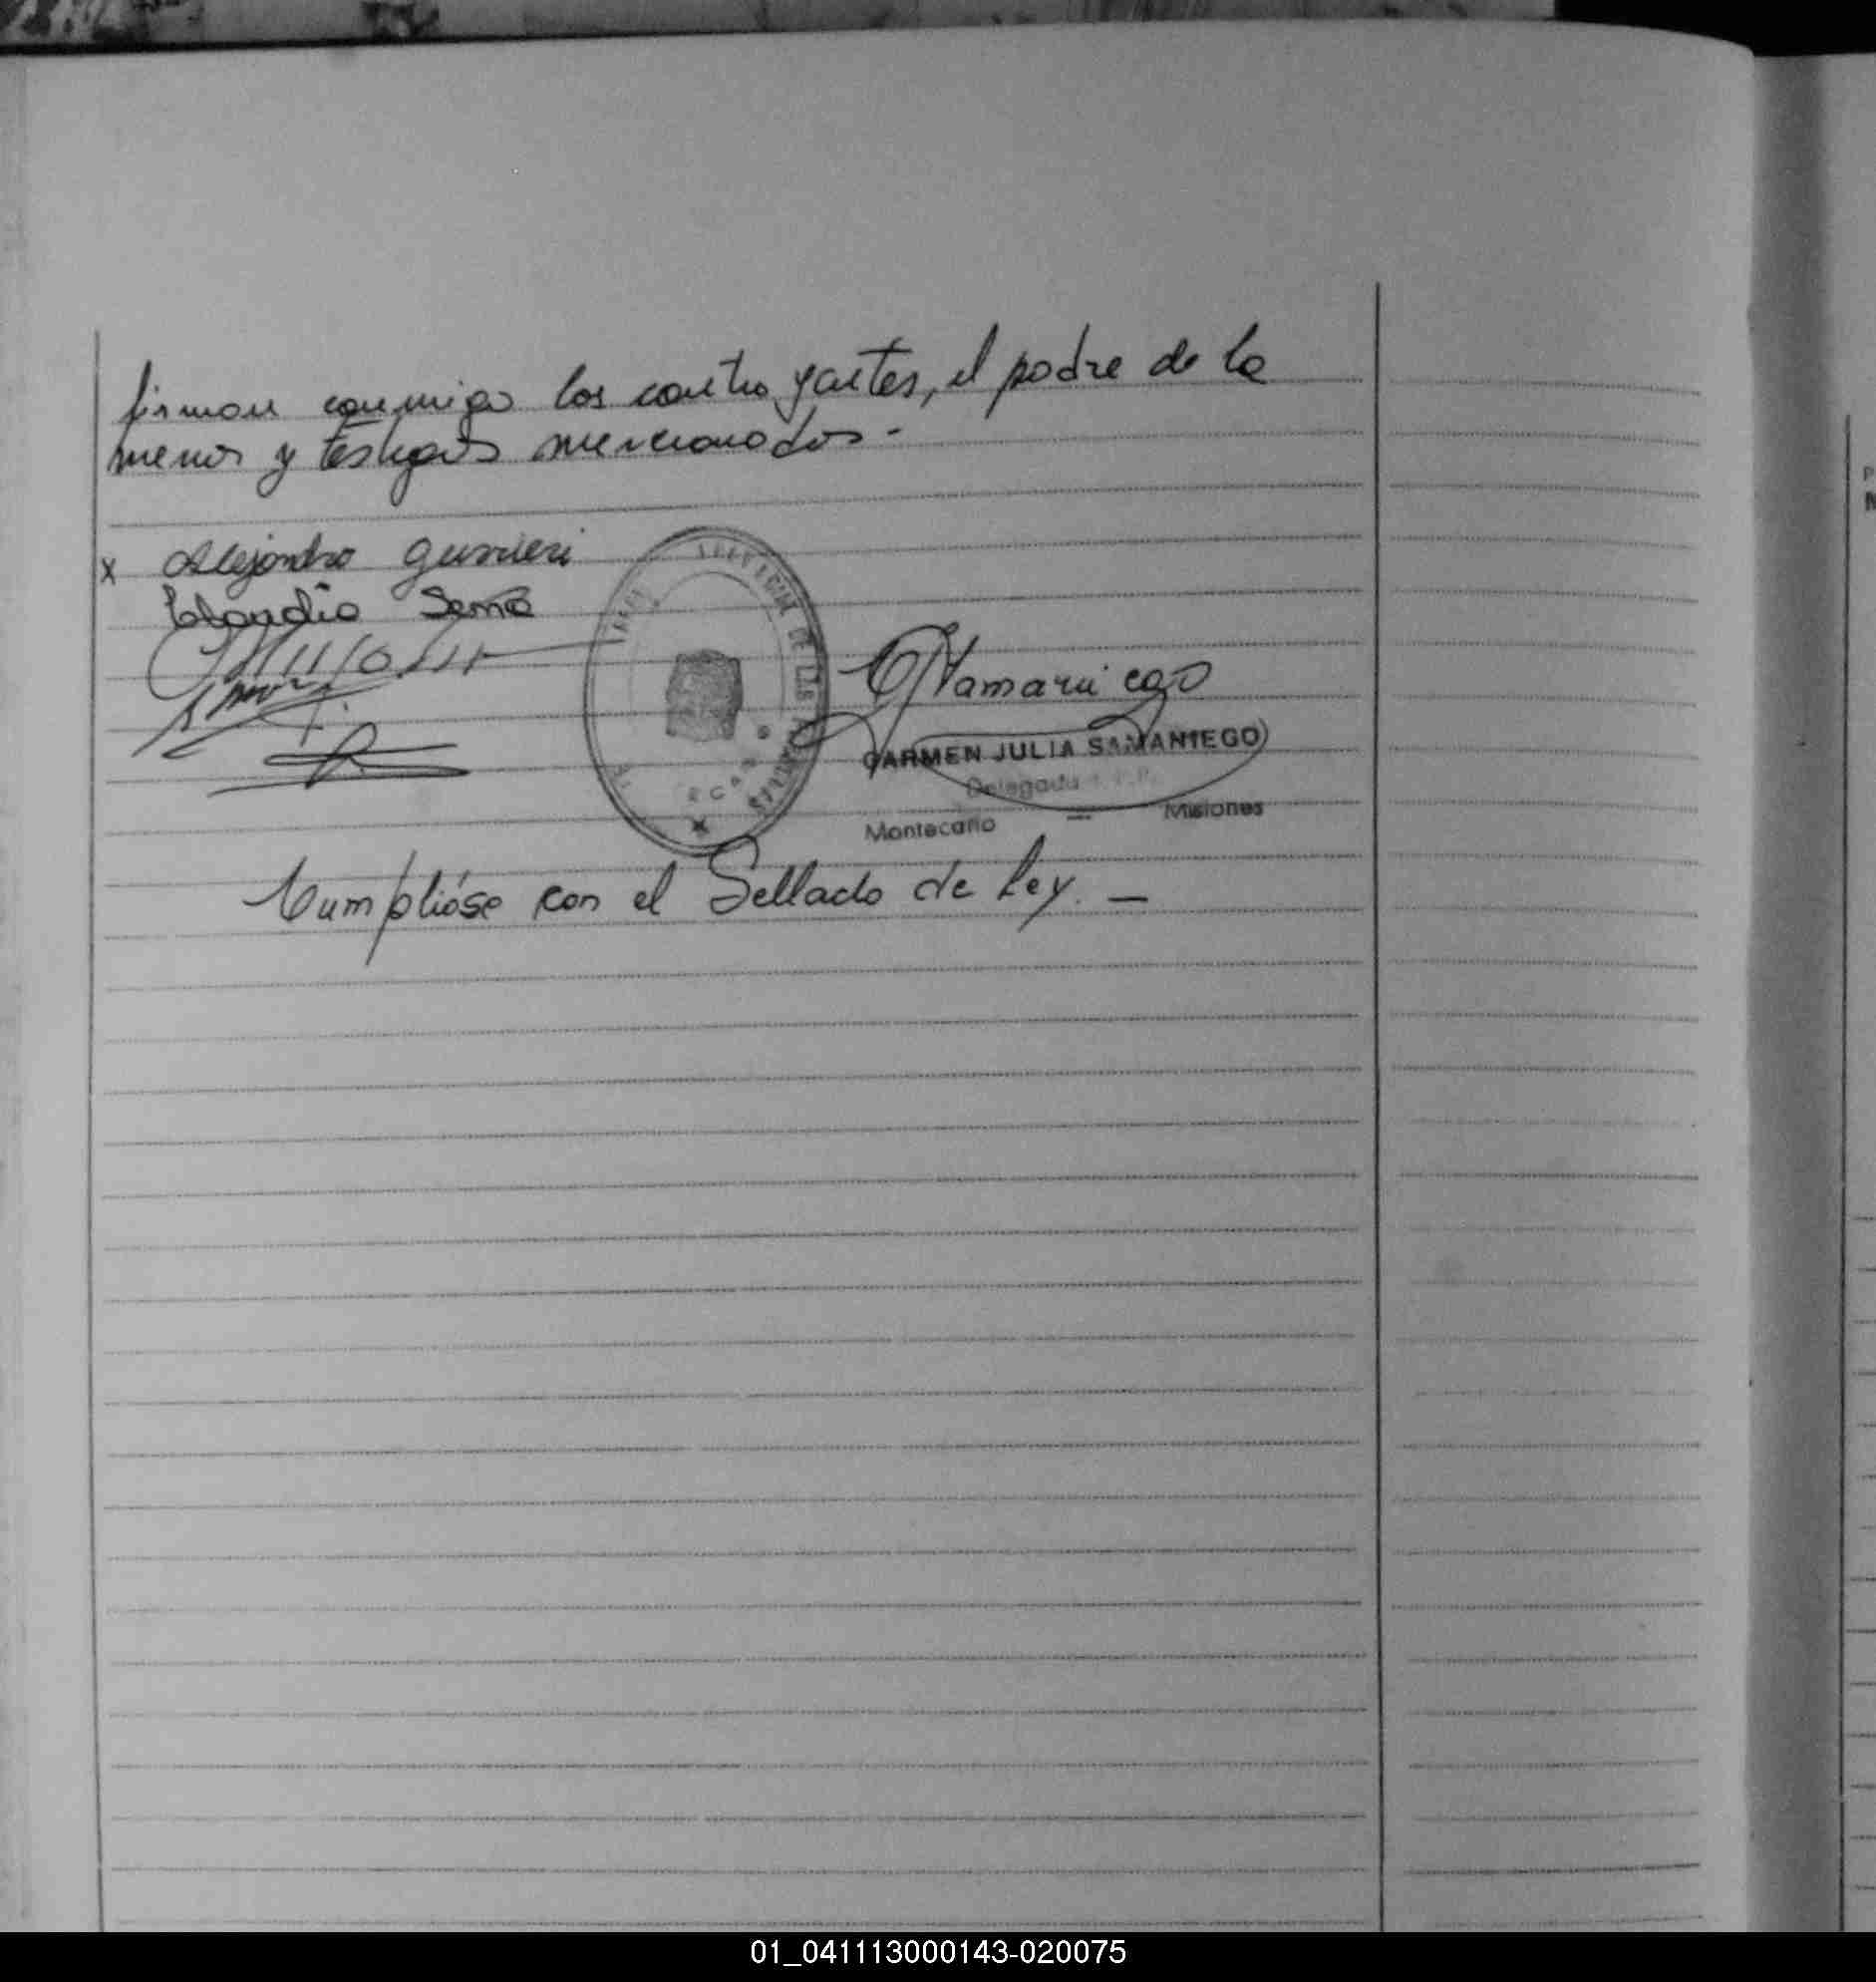 firman conmigo los contrayentes, el padre de la
menor y testigos mencionados -
x Alejandro Guerrieri
Claudia Serna
CARMEN JULIA SAMANIEGO
Delegada
Montecarlo — Misiones
Cumplióse con el Sellado de Ley. —
01_041113000143-020075